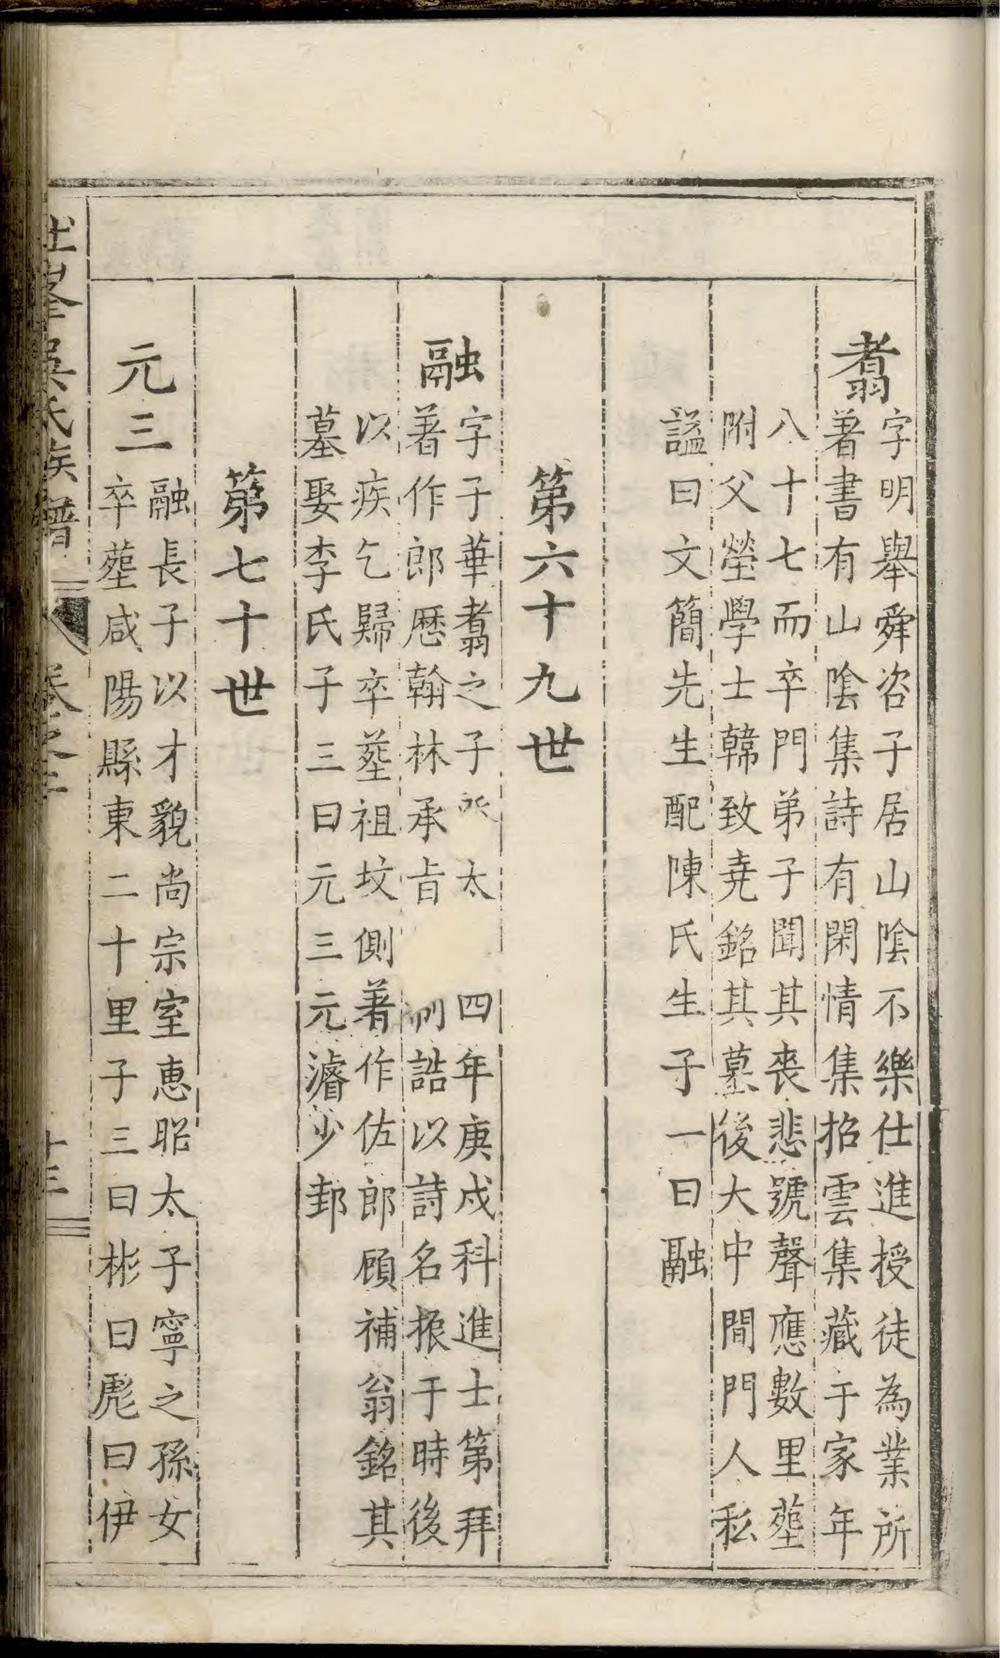 翥
字明舉舜咨子居山陰不樂仕進授徒為業所
著書有山陰集詩有閑情集招雲集藏于家年
八十七而卒門弟子聞其喪悲號聲應數里塟
附父塋學士韓致堯銘其墓後大中間門人私
諡曰文簡先生配陳氏生子一曰融
第六十九世
融
字子華翥之子 太 四年庚戌科進士第拜
著作郎歷翰林承旨 制誥以詩名振于時後
以疾乞歸卒塟祖坟側著作佐郎顧補翁銘其
墓娶李氏子三曰元三元濬少邽
第七十世
元三
融長子以才貌尚宗室惠昭太子寧之孫女
卒塟咸陽縣東二十里子三曰彬曰彪曰伊
吳氏族譜 卷之 十三